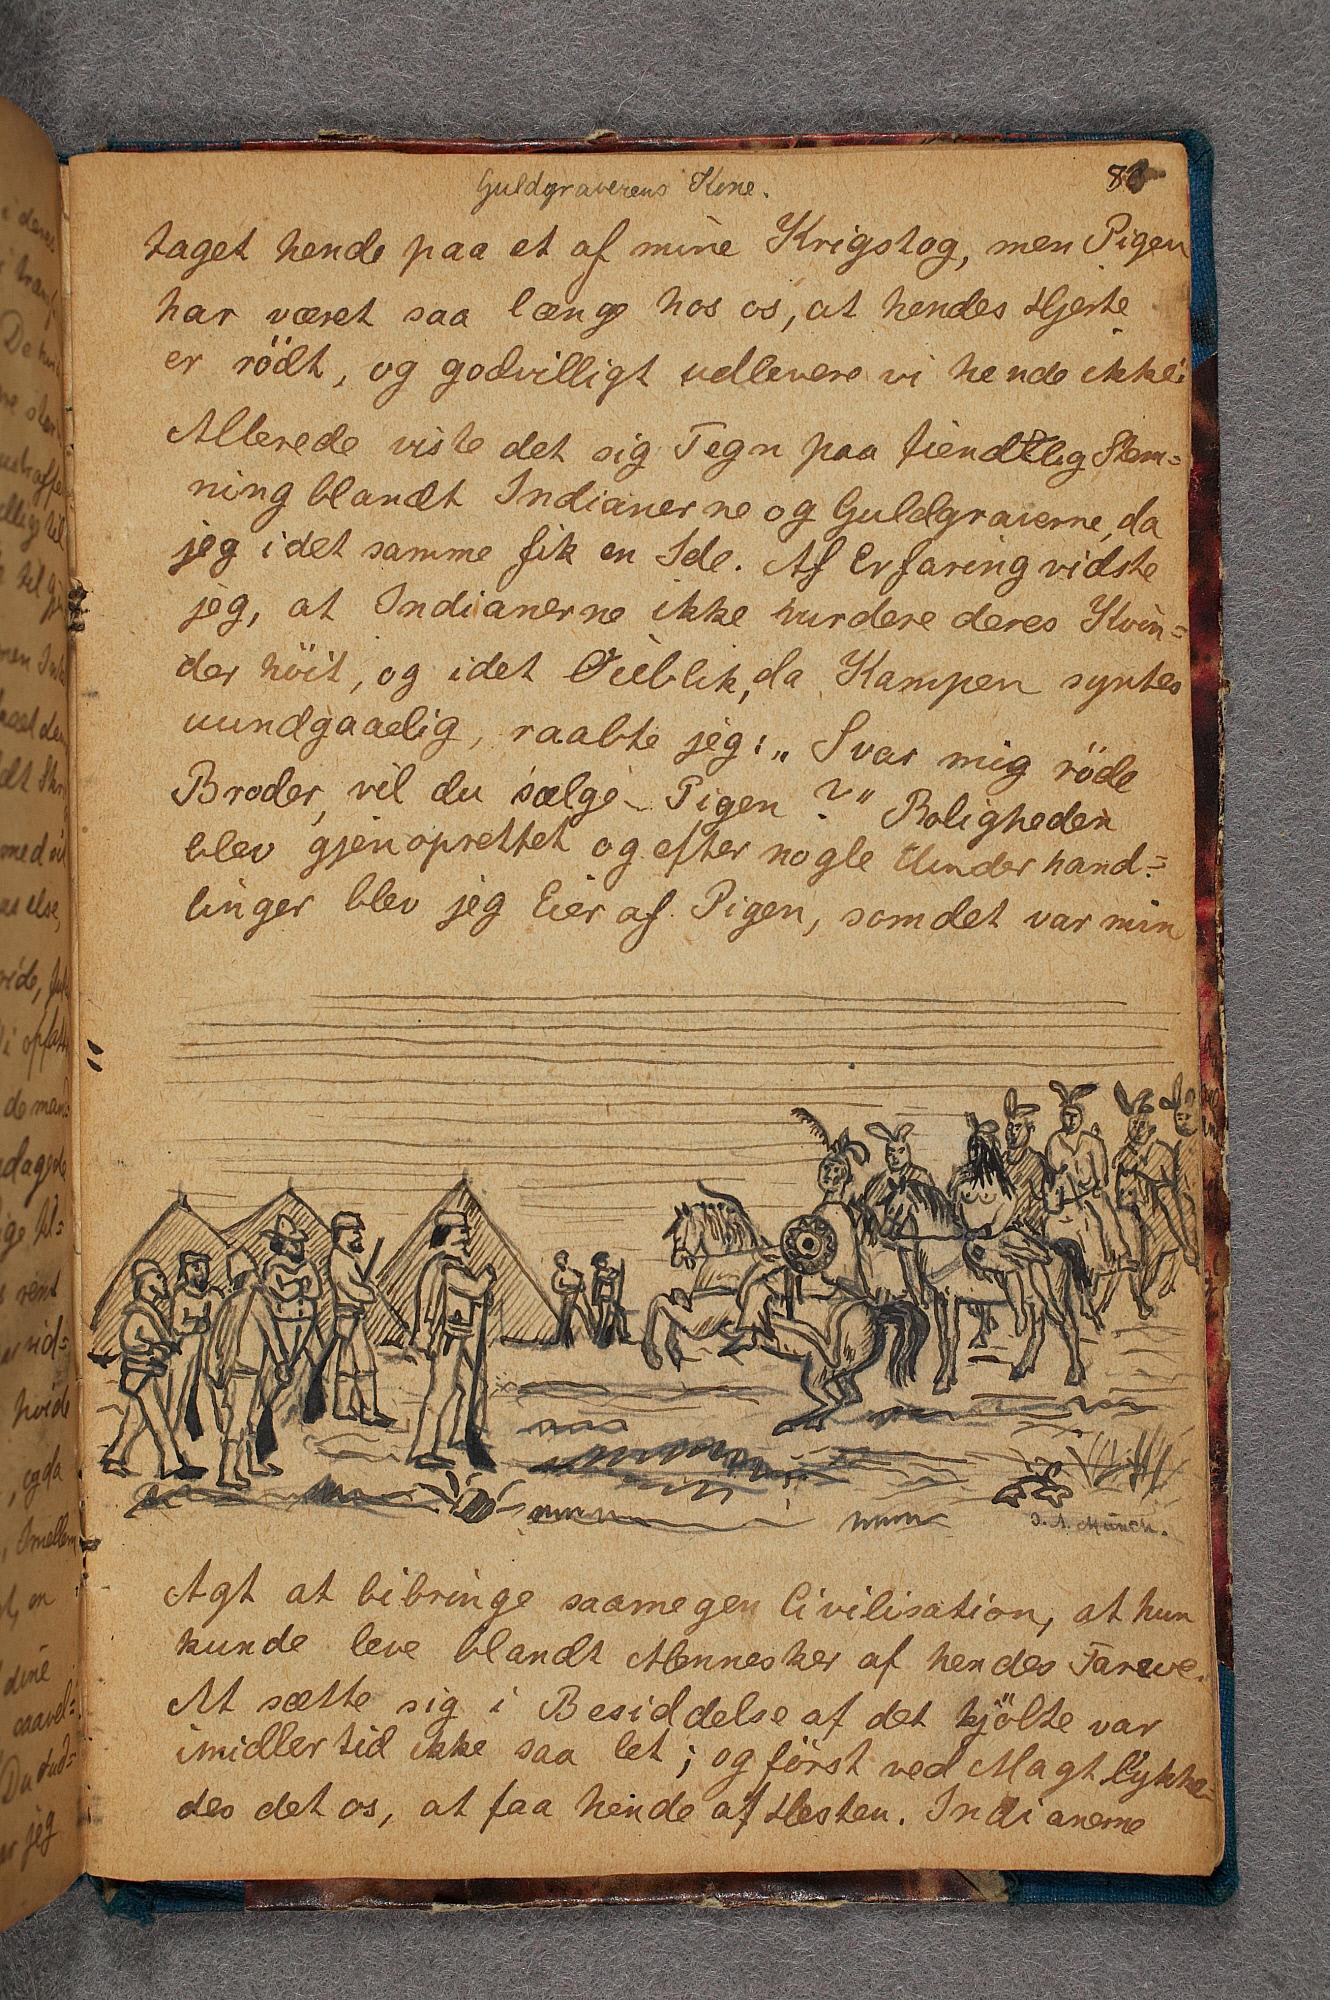 Guldgraverens Kone.
taget hende paa et af mine Krigstog, men Pigen
har været saa længe hos os, at hendes Hjerte
er rödt, og godvilligt udlevere vi hende ikke:
Allerede viste det sig Tegn paa fiendtlig Stem=
ning blandt Indianerne og Guldgraverne, da
jeg idet samme fik en Ide. Af Erfaring vidste
jeg, at Indianerne ikke vurdere deres Kvin=
der höit, og idet Öieblik, da Kampen syntes
uundgaaelig, raabte jeg: „Svar mig röde
Broder, vil du sælge Pigen?" Roligheden
blev gjenoprettet og efter nogle Underhand=
linger blev jeg Eier af Pigen, som det var min
J. A. Münch.
Agt at bibringe saamegen Civilisation, at hun
kunde leve blandt Mennesker af hendes Farve.
At sætte sig i Besiddelse af det kjöbte var
imidlertid ikke saa let; og först ved Magt lykke=
des det os, at faa hende af Hesten. Indianerne